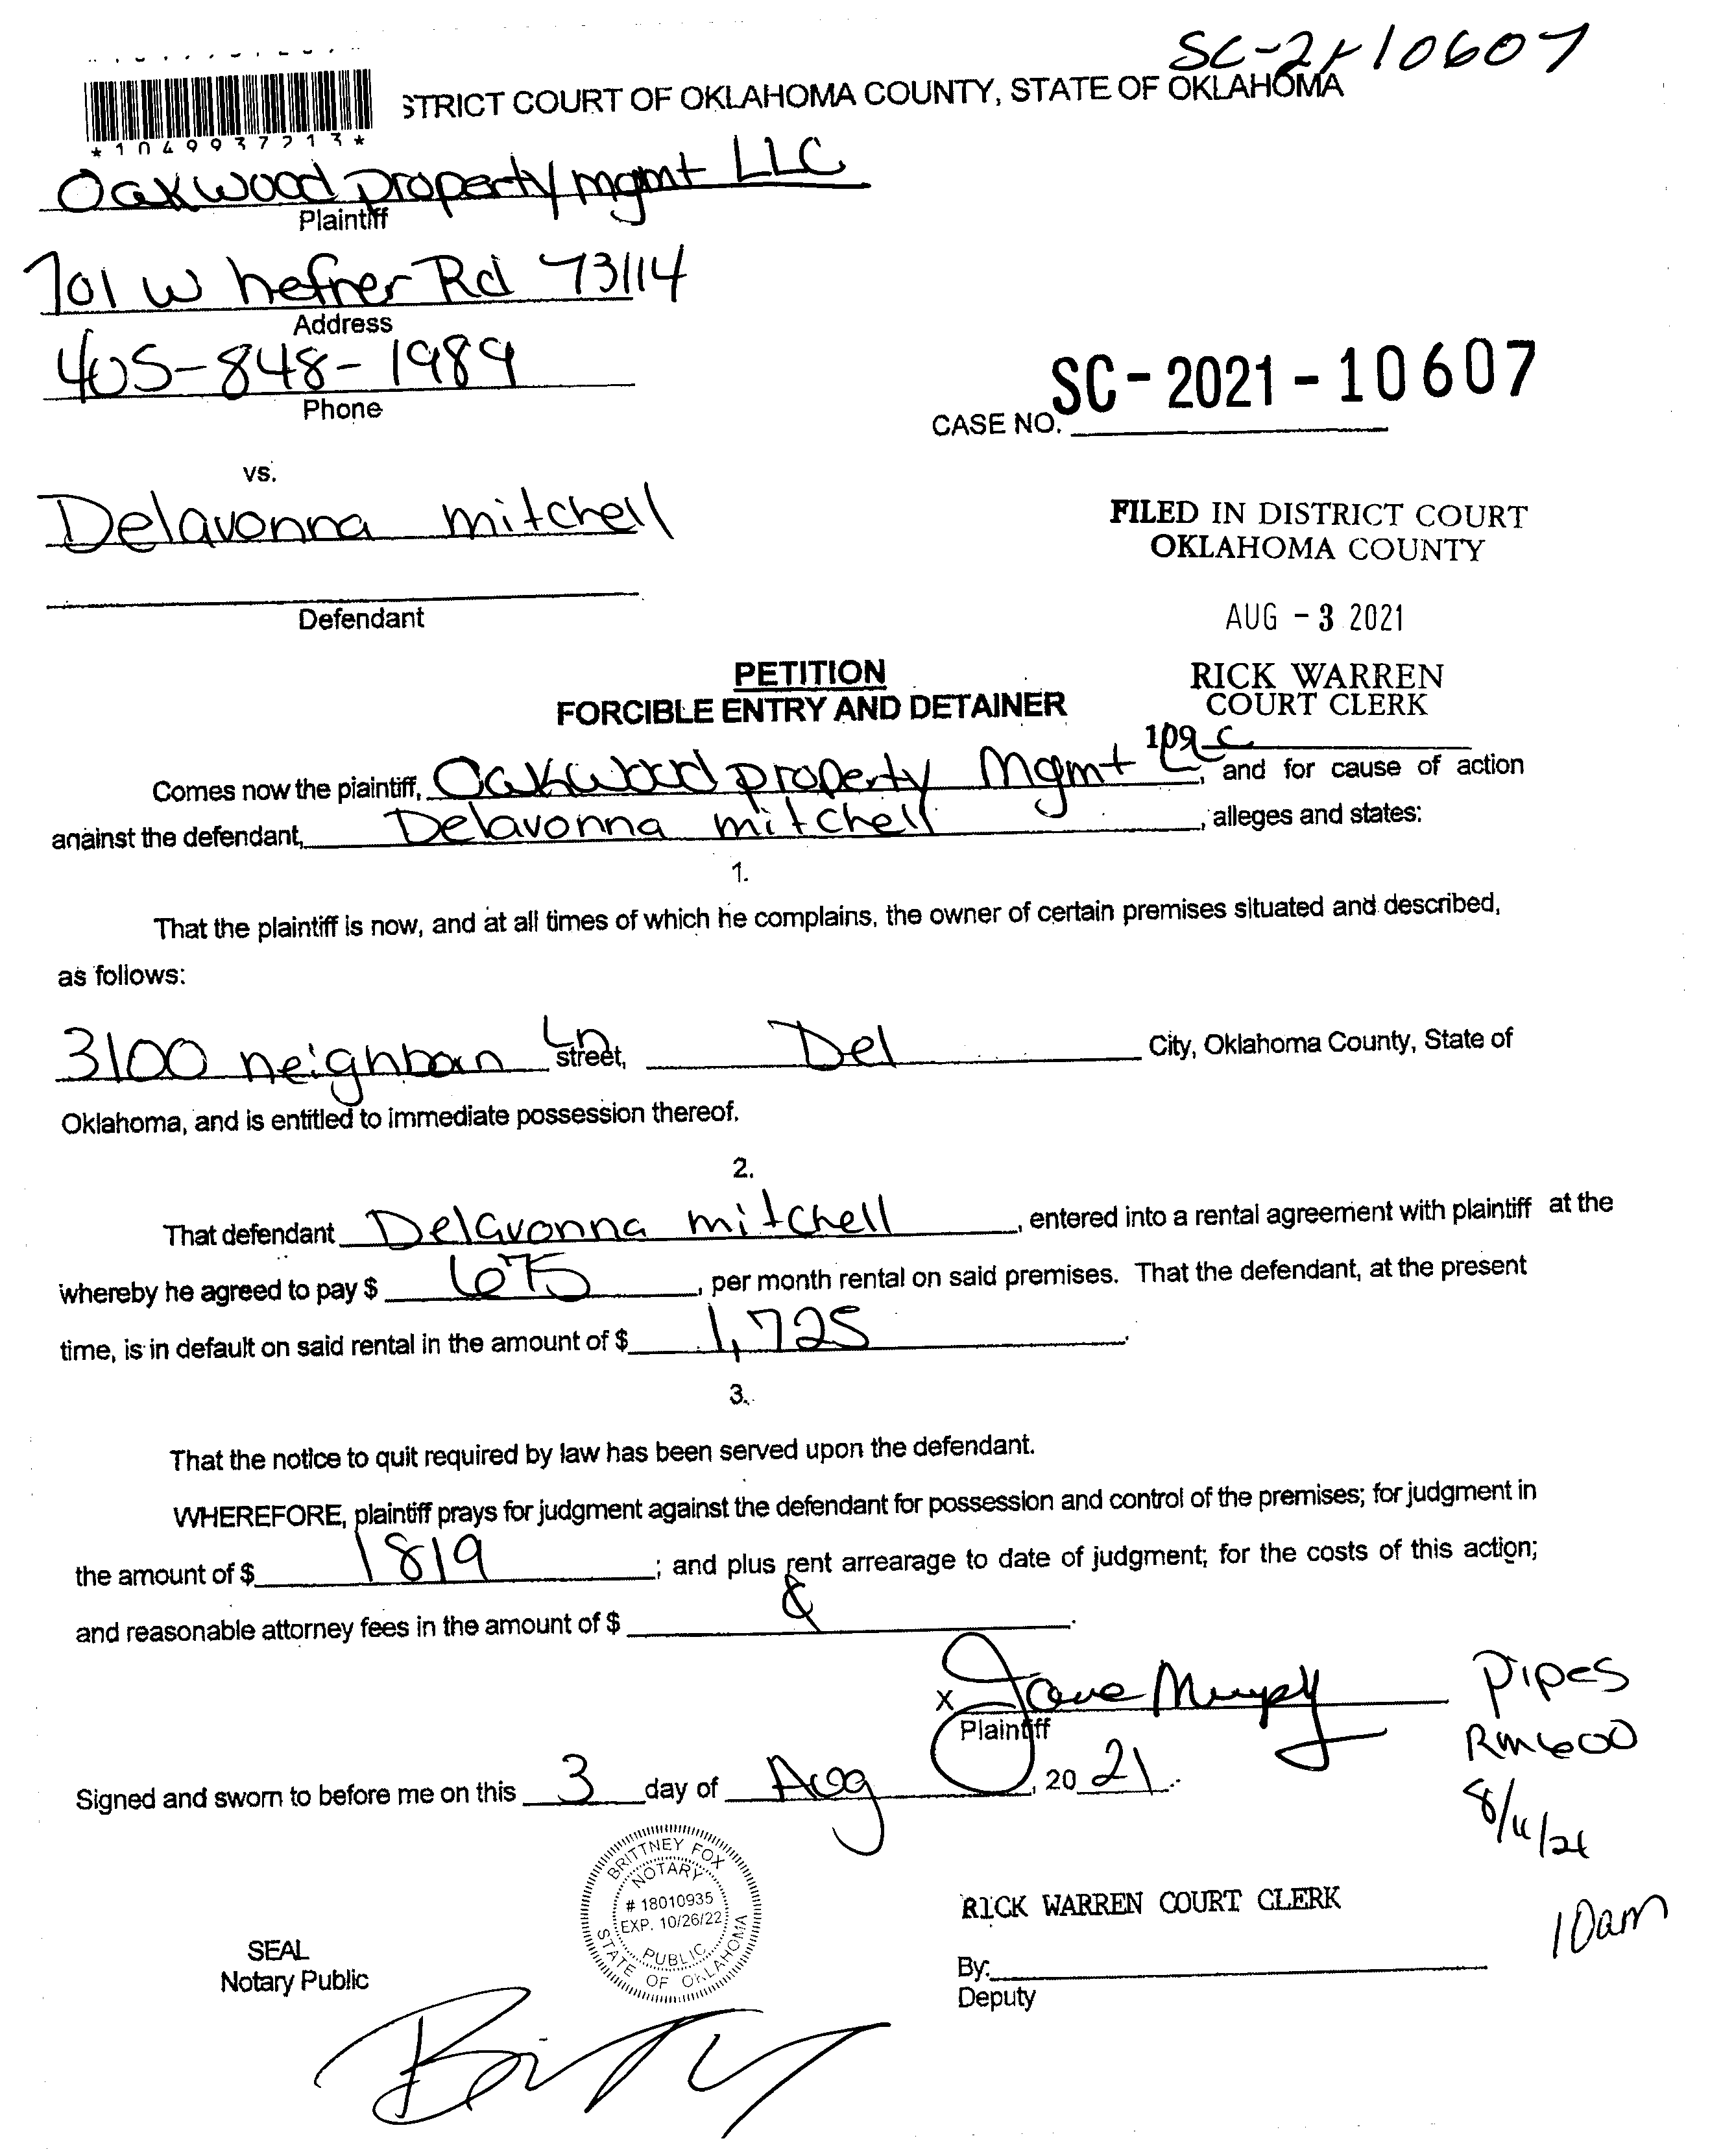 SC-21-10607
STRICT COURT OF OKLAHOMA COUNTY, STATE OF OKLAHOMA
*1049937213*
Oakwood property mgmt LLC
Plaintiff
701 W hefner Rd 73114
Address
405-848-1989
Phone
CASE NO. SC-2021-10607
vs.
Delavonna mitchell
FILED IN DISTRICT COURT
OKLAHOMA COUNTY
Defendant
AUG - 3 2021
PETITION
FORCIBLE ENTRY AND DETAINER
RICK WARREN
COURT CLERK
109
Comes now the plaintiff, Oakwood property Mgmt LLC, and for cause of action
against the defendant, Delavonna mitchell, alleges and states:
1.
That the plaintiff is now, and at all times of which he complains, the owner of certain premises situated and described,
as follows:
3100 Ln street, Del City, Oklahoma County, State of
Oklahoma, and is entitled to immediate possession thereof.
2.
That defendant Delavonna mitchell, entered into a rental agreement with plaintiff at the
whereby he agreed to pay $ 675, per month rental on said premises. That the defendant, at the present
time, is in default on said rental in the amount of $ 1,725.
3.
That the notice to quit required by law has been served upon the defendant.
WHEREFORE, plaintiff prays for judgment against the defendant for possession and control of the premises; for judgment in
the amount of $ 1819; and plus rent arrearage to date of judgment; for the costs of this action;
and reasonable attorney fees in the amount of $
x Jane Murphy
Plaintiff
Pipes
RM 600
Signed and sworn to before me on this 3 day of Aug, 20 21.
10am
BRITTNEY FOX
NOTARY
# 18010935
EXP. 10/26/22
PUBLIC
STATE OF OKLAHOMA
SEAL
Notary Public
RICK WARREN COURT CLERK
By:
Deputy